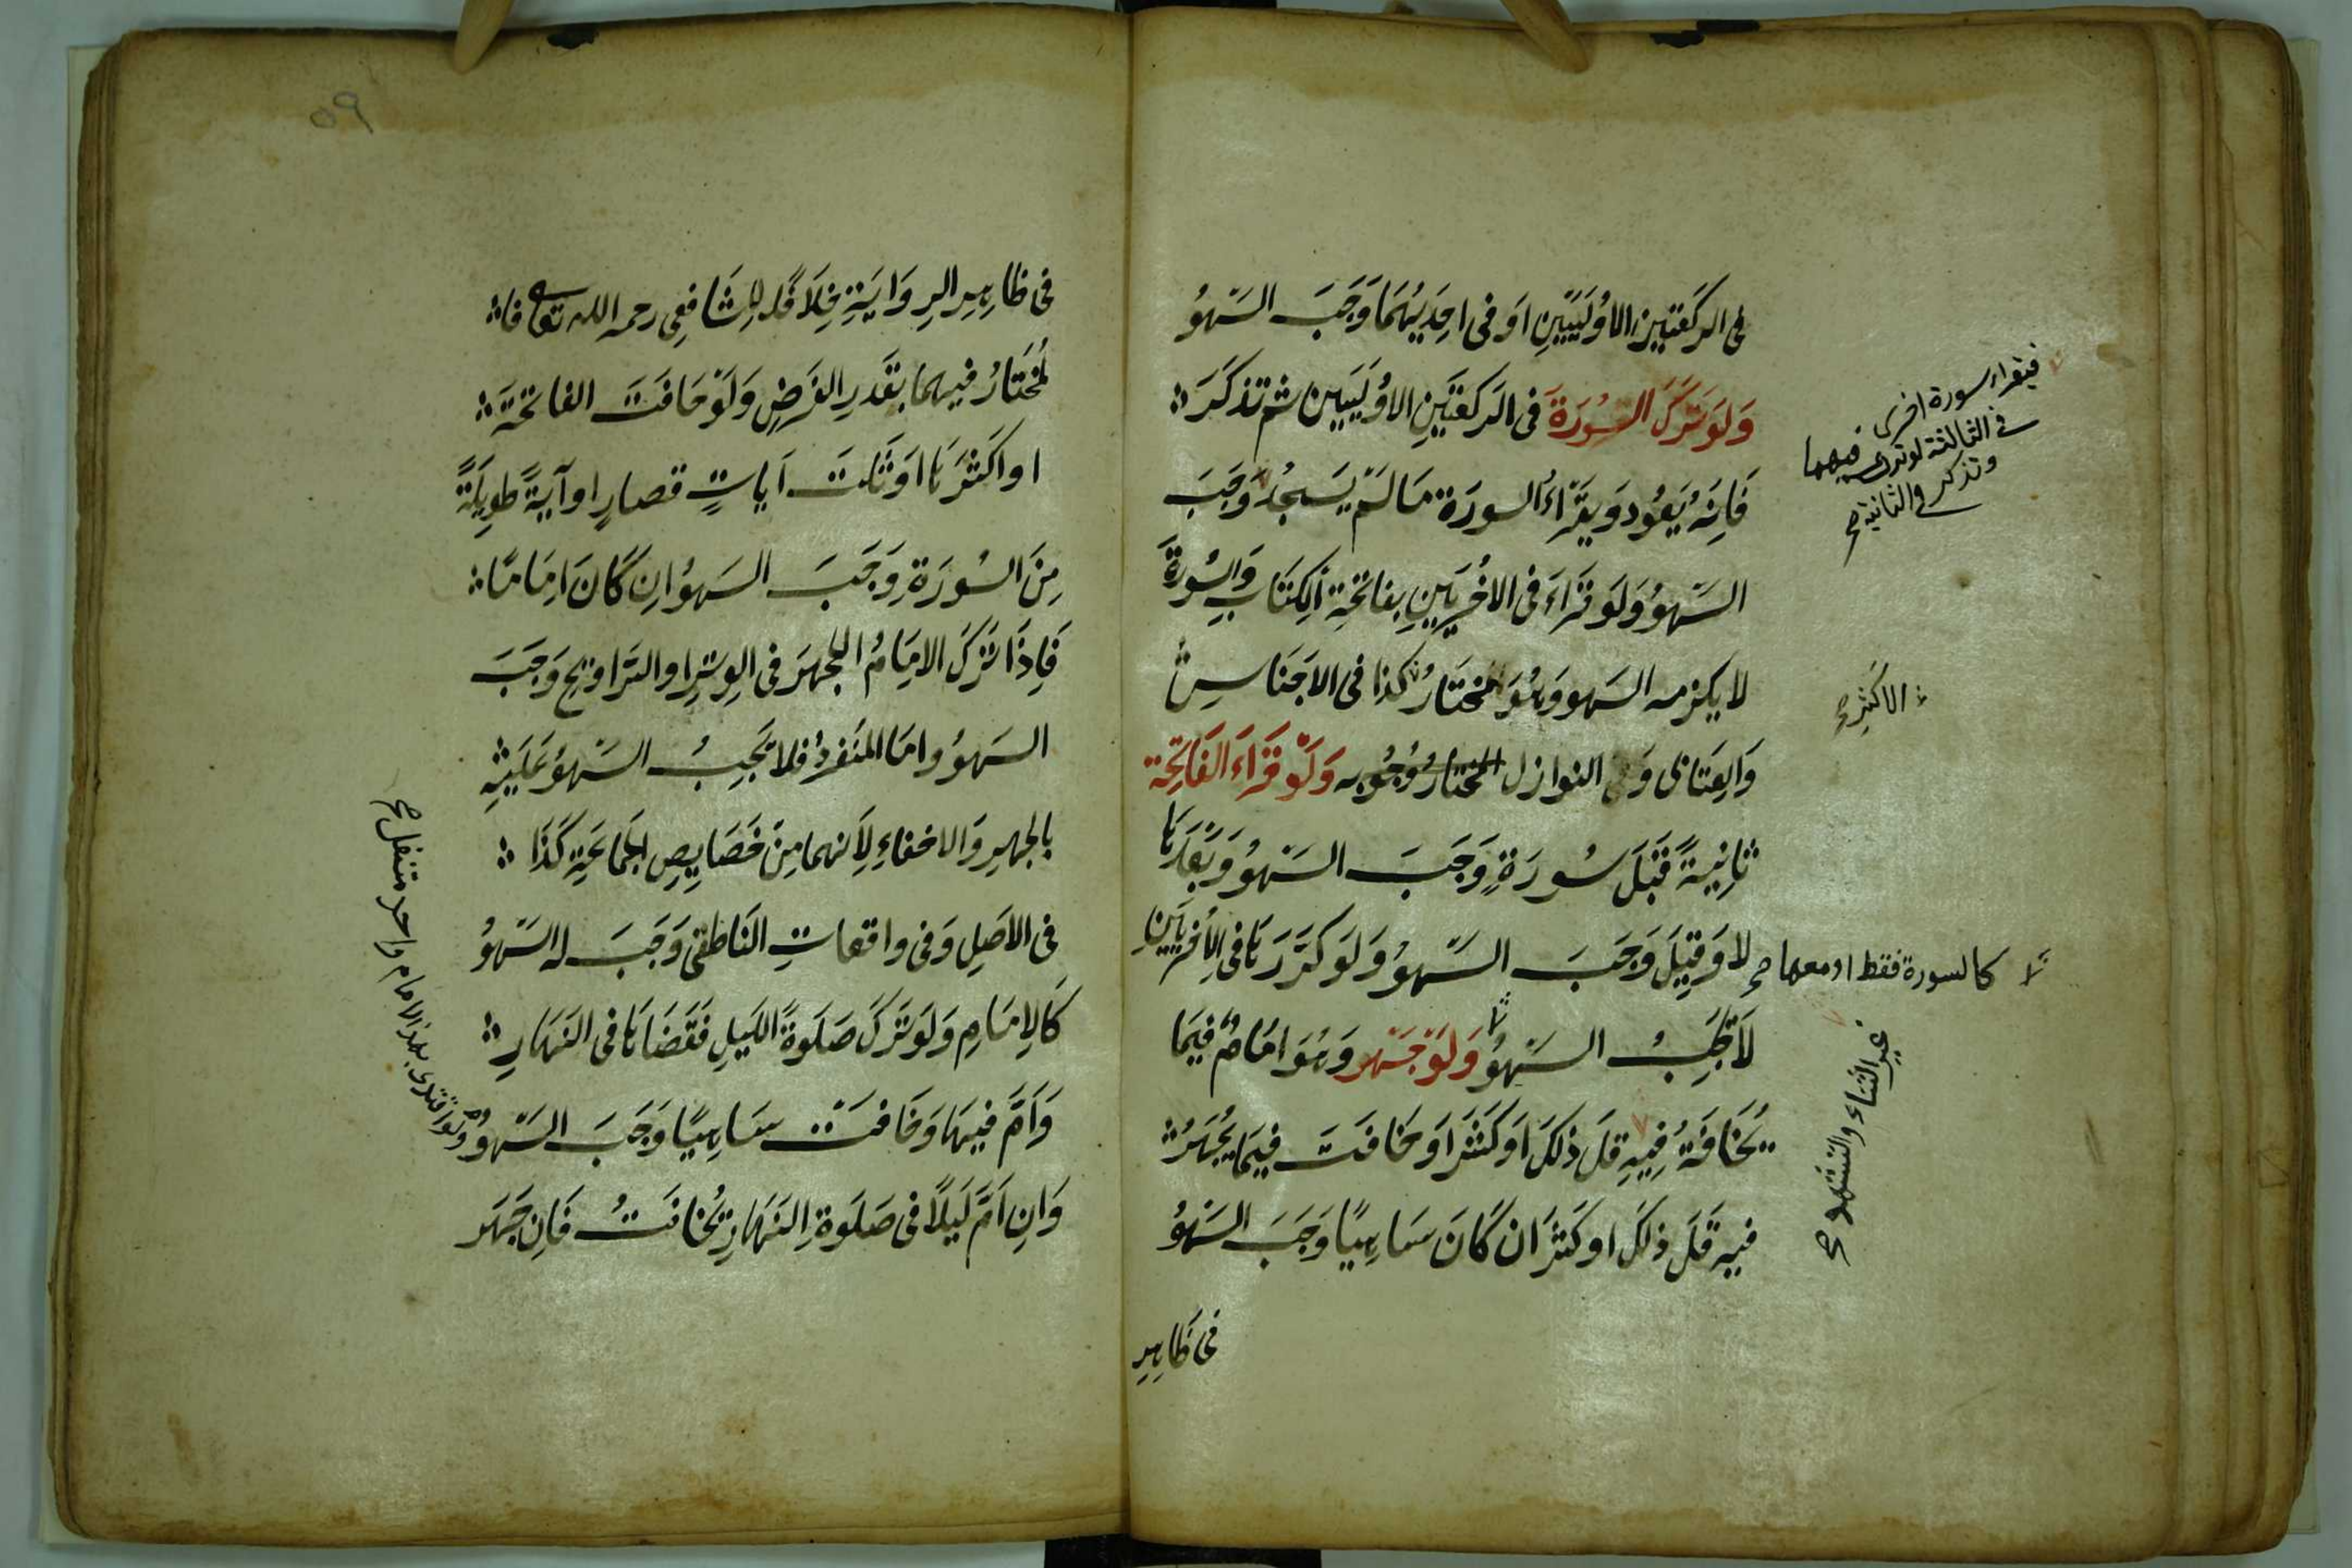 فى الركعتين الاُوْلَيَيْنِ اَوْ فى احِدَيهُمَا وَجَبَ السَّهْوُ
وَلَوْ تَرَكَ السُّورَةَ فى الرَكعَتَيْنِ الاُوْلَيَيَن ثم تذكَّرَ
فَاِنَهُ يَعُود وَيقَرَاءُ السورَة مَا لَمْ يَسْجُدْ وَجَبَ
السَّهْوُ وَلَو قَرَاءَ فى الاُخْرَيَيَنِ بفاتحَةِ الكِتَابِ وَالسُورَةِ
لا يلزمه السَهو وَهُوَ المخَتَارُ كذا فى الاَجنَاسِ
وَالعِتَابى وَفى النوازل المختارُ وُجُوبه وَلَوْ قَرَاءَ الفَاتِحَة
ثانِيَةً قَبْلَ سُورَةٍ وَجَبَ السَهْوُ وَبَعْدَهَا
لا وَقِيْلَ وَجَبَ السَّهْوُ وَلَو كَرَّرَهَا فى الاُخْرَيَيْنِ
لَا يَجِبُ السَّهْوُ وَلَوْ جَهَر وَهُوَ امَامٌ فِيمَا
يُخَافَتُ فِيهِ قلَ ذلكَ اَوْ كَثَرَ اَو خافَتَ فِيمَا يُجْهَرُ
فيه قَلَ ذلكَ او كَثَرَ ان كَانَ سَاهِيًا وَجَبَ السَهْوُ
فى ظَاهِر
فيقراء سورة اخرى
فى الثالثة لو ترك فيهما
وتذكر فى الثانية صح
الاكثر صح
كالسورة فقط او معها صح
غير الثناء والتشهد صح
٥٩
فى ظاهِرِ الرِوَايَةِ خِلَافًا لِلشَافعِى رحمه الله تعا فا
لمُخْتَارُ فيهما بقَدرِ الفَرَضِ وَلَوْ خَافَتَ الفاتحَةَ
او اكَثرَهَا اوَ ثَلثَ آياتٍ قصارٍ او آيَةً طَوِيلَةً
مِنَ السُورَةِ وَجَبَ السَهوُ اِن كَانَ امِاَمًا
فَاِذَا تَرَكَ الامِامُ الجهَرَ فى الوِترِ او التَراويح وَجَبَ
السَهوُ وامَا المنفَردُ فلا يَجِبُ السَّهوُ عَلَيْهِ
بالجهرِ وَالاخفاءِ لِاَنهما مِنْ خَصَايصِ الجَمَاعَةِ كَذَا
فى الاَصلِ وَفى واقعاتِ النَاطِفى وَجَبَ له السَهْوُ
كَالاِمَامِ وَلَو تَرَكَ صَلَوةَ اللَيلِ فقَضَاهَا فى النَهَارِ
وَاَمَّ فيهَا وَخَافتَ سَاهِيًا وَجَبَ السَّهْوُ
وَاِن اَمَّ لَيلًا فى صَلَوةِ النَهَارِ يُخَافتُ فَاِن جَهَر
ولو اقتدى بهذا الامام واحد متنفل صح